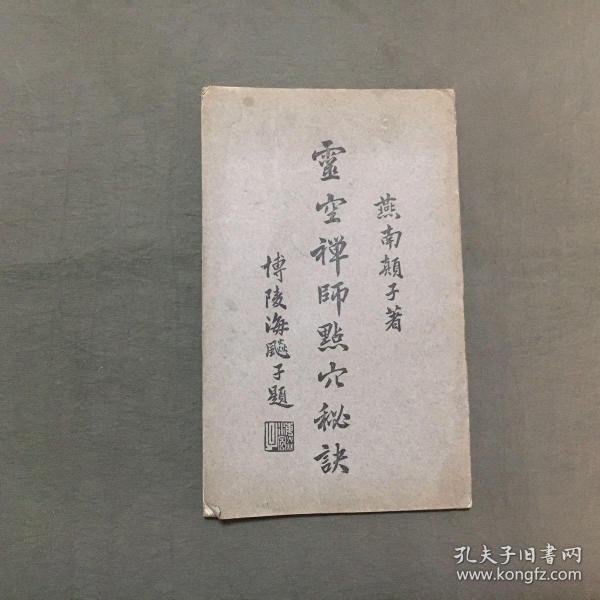 燕南顛子著
靈空禪師點穴秘訣
博陵海飈子題
孔夫子旧书网
www.kongfz.com